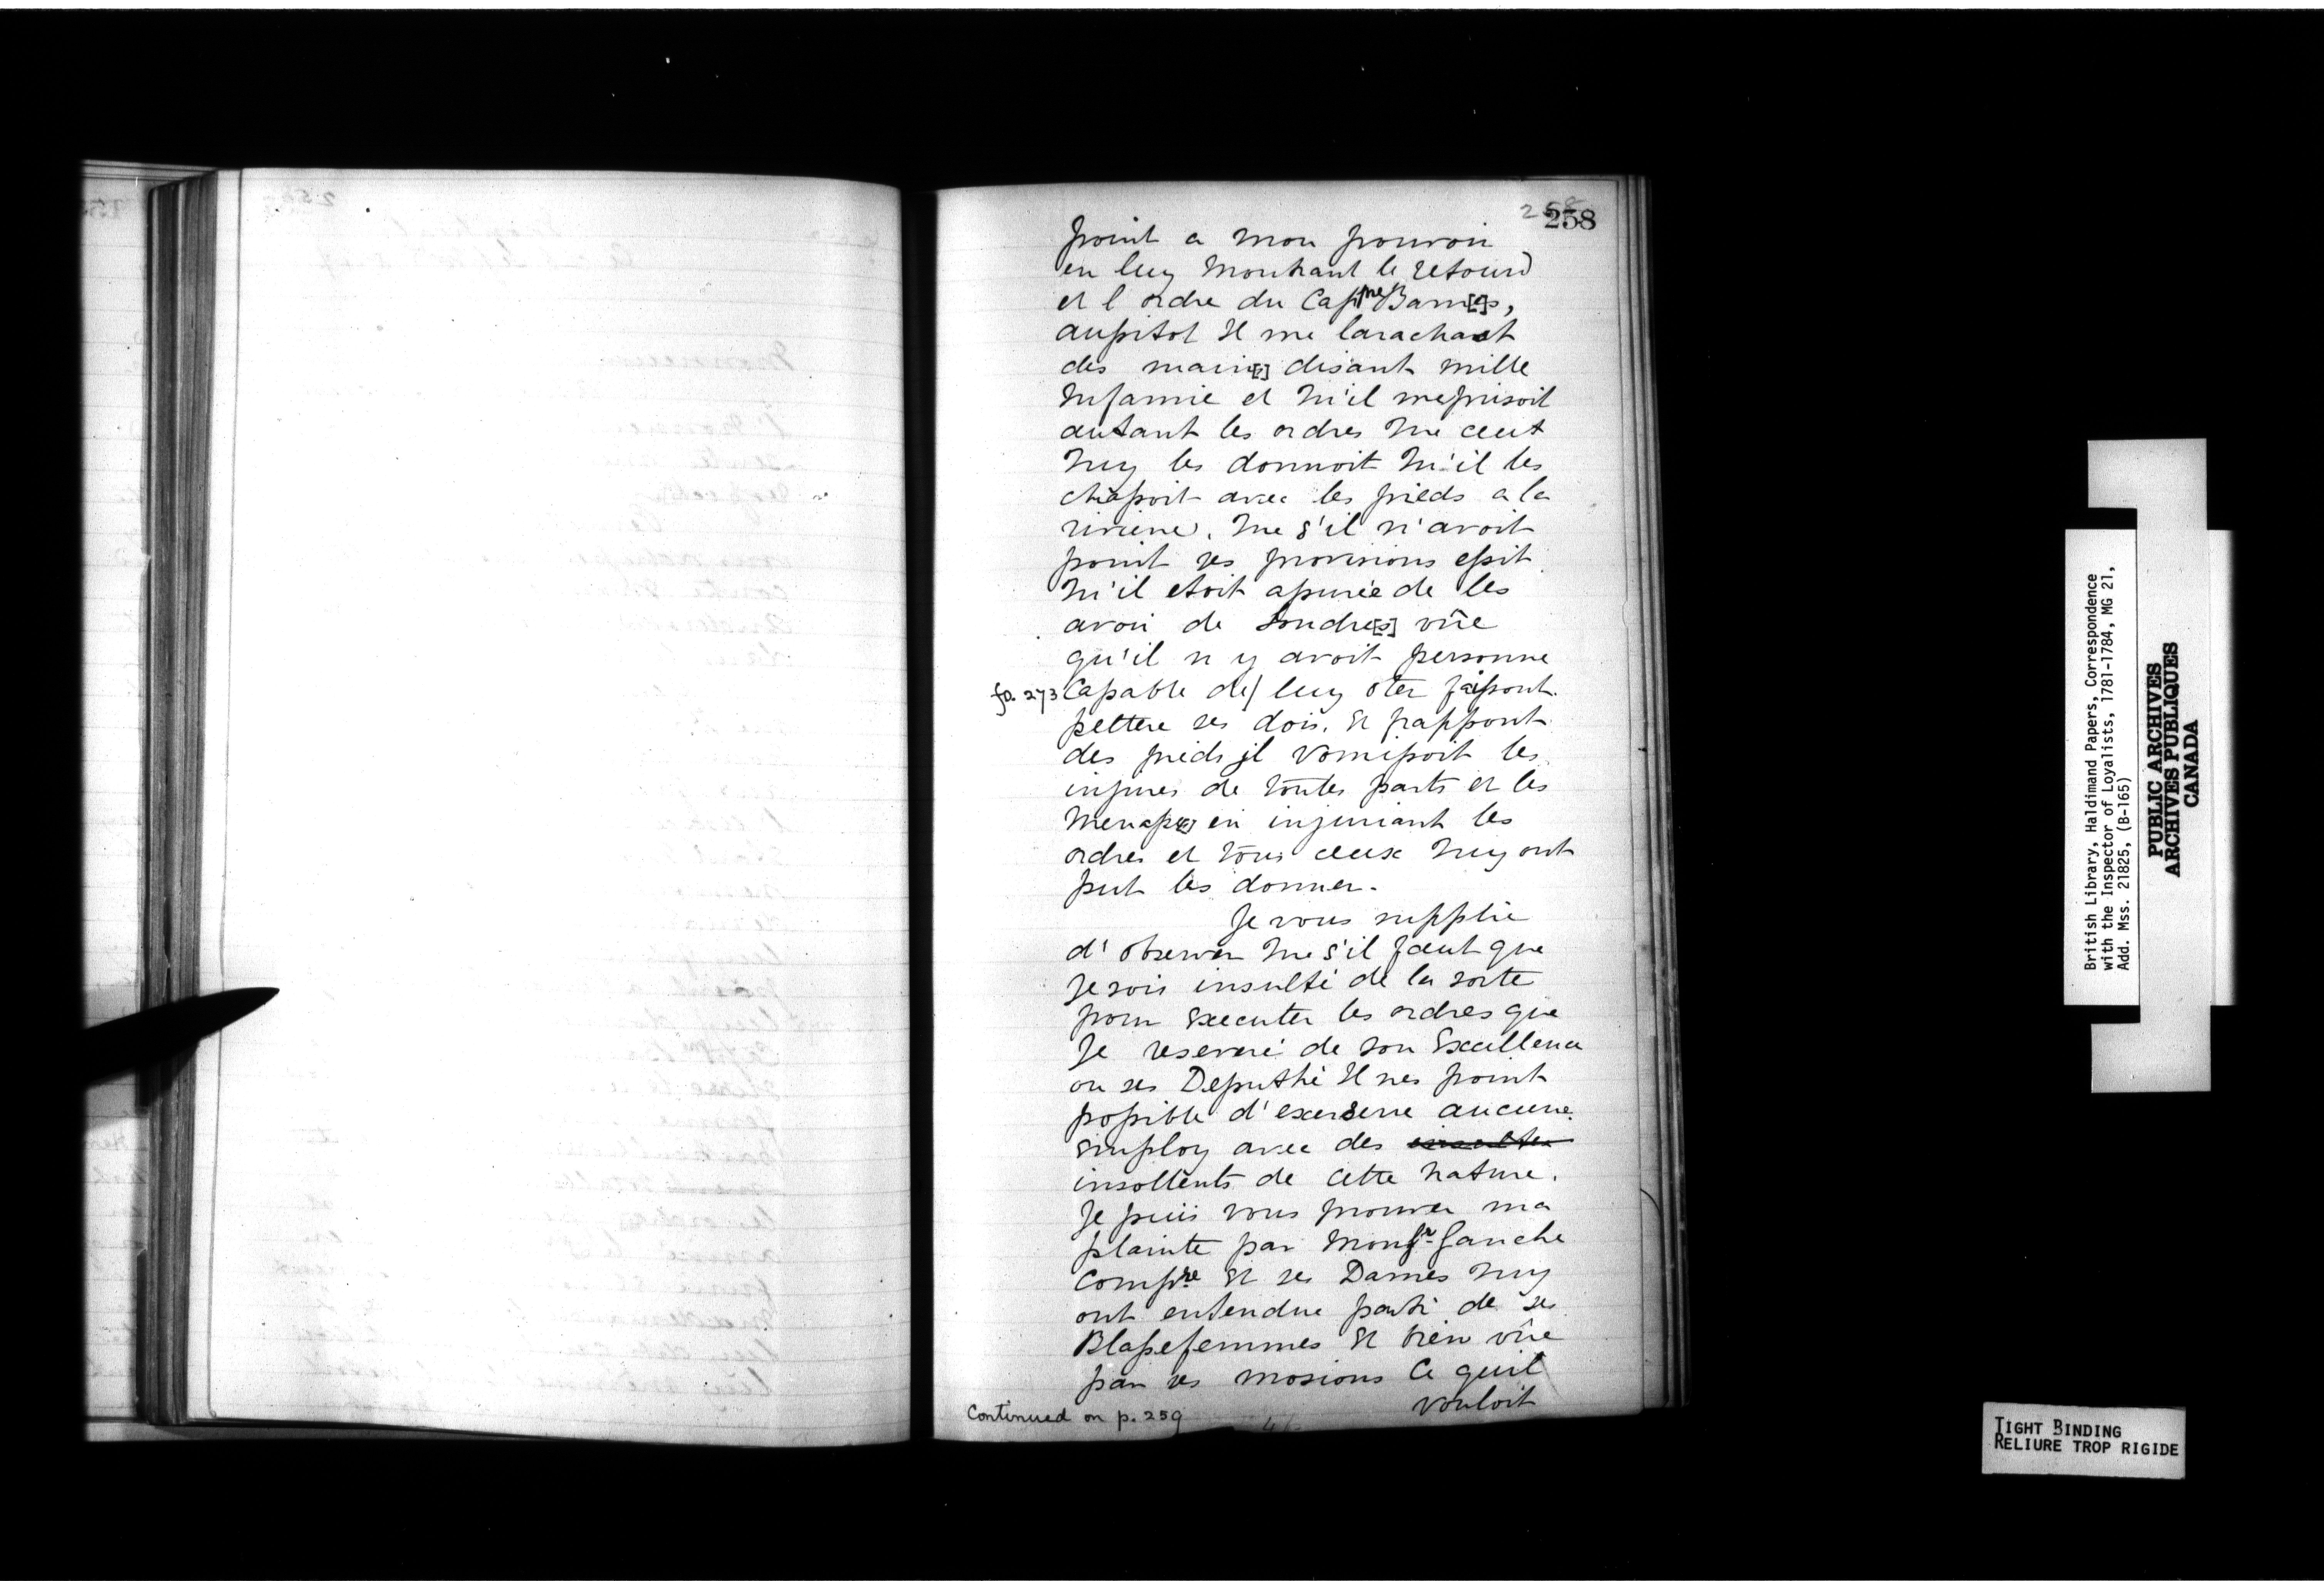 258
258
point a mon pouvoir
en luy montrant le retourd
et l ordre du Cap^ne Barn[e]s,
aussitot Il me larachaat
des main[s] disant mille
Infamie et qu'il meprisoit
autant les ordres que ceut
quy les donnoit qu'il les
chassoit avec les pieds a la
riviere. que s'il n'avoit
point ses provisions essit
qu'il etoit assurée de les
avoir de Londre[s] vûe
qu'il n y avoit personne
fo. 273 Capable de/ luy oter faissont
pettere ses dois. Et frappont
des pieds jl vomissoit les
injures de toutes parts et les
Menasse[s] en injuriant les
ordres et tous ceux quy ont
put les donner.
Je vous supplie
d'observer que s'il faut que
Je sois insulté de la sorte
pour Executer les ordres que
Je reseveré de son Excellence
ou ses Deputhé Il nes point
possible d'exerserre aucune
Employ avec des
insollents de cette nature.
Je puis vous prouver ma
plainte par Mons^r Ganche
Comp^re Et ses Dames quy
ont entendue parti de ses
Blassefemmes Et bien vûe
par ses mosions Ce quil
vouloit
Continued on p. 259
British Library, Haldimand Papers, Correspondence
with the Inspector of Loyalists, 1781-1784, MG 21,
Add. Mss. 21825, (B-165)
PUBLIC ARCHIVES
ARCHIVES PUBLIQUES
CANADA
TIGHT BINDING
RELIURE TROP RIGIDE